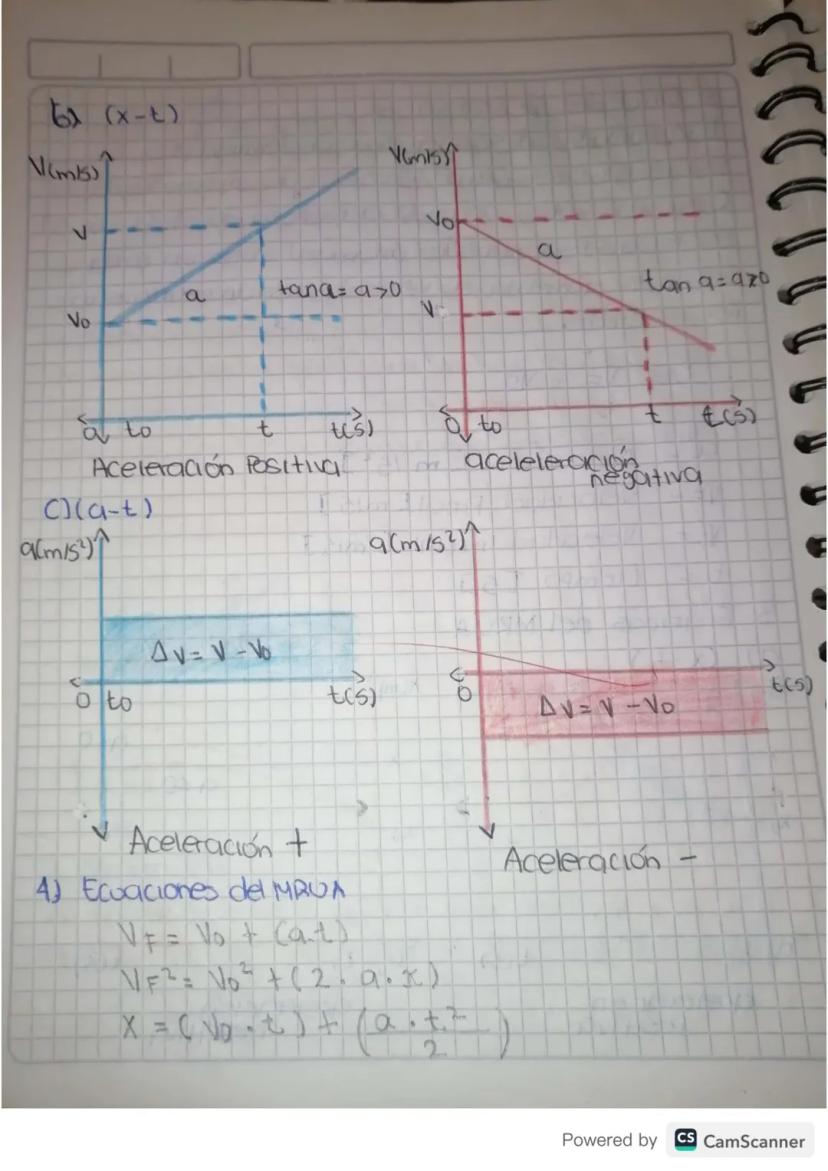 b) (x-t)
V(m/s)
V
a
tan a = a>0
Vo
0 to t t(s)
Aceleración Positiva
V(m/s)
Vo
a
V
0 to t t(s)
aceleleración
negativa
C) (a-t)
a(m/s²)
ΔV = V - Vo
0 to t(s)
Aceleración +
a(m/s²)
0 t(s)
ΔV = V - Vo
Aceleración -
4) Ecuaciones del MRUA
VF = Vo + (a.t)
VF² = Vo² + (2 . a . x)
X = (Vo . t) + (a . t² / 2)
Powered by CS CamScanner